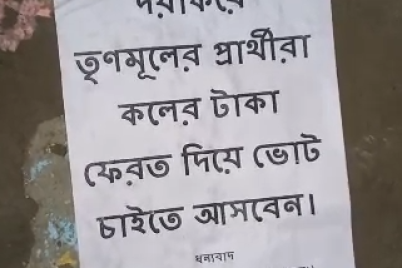 দয়াকরে
তৃণমূলের প্রার্থীরা
কলের টাকা
ফেরত দিয়ে ভোট
চাইতে আসবেন।
ধন্যবাদ